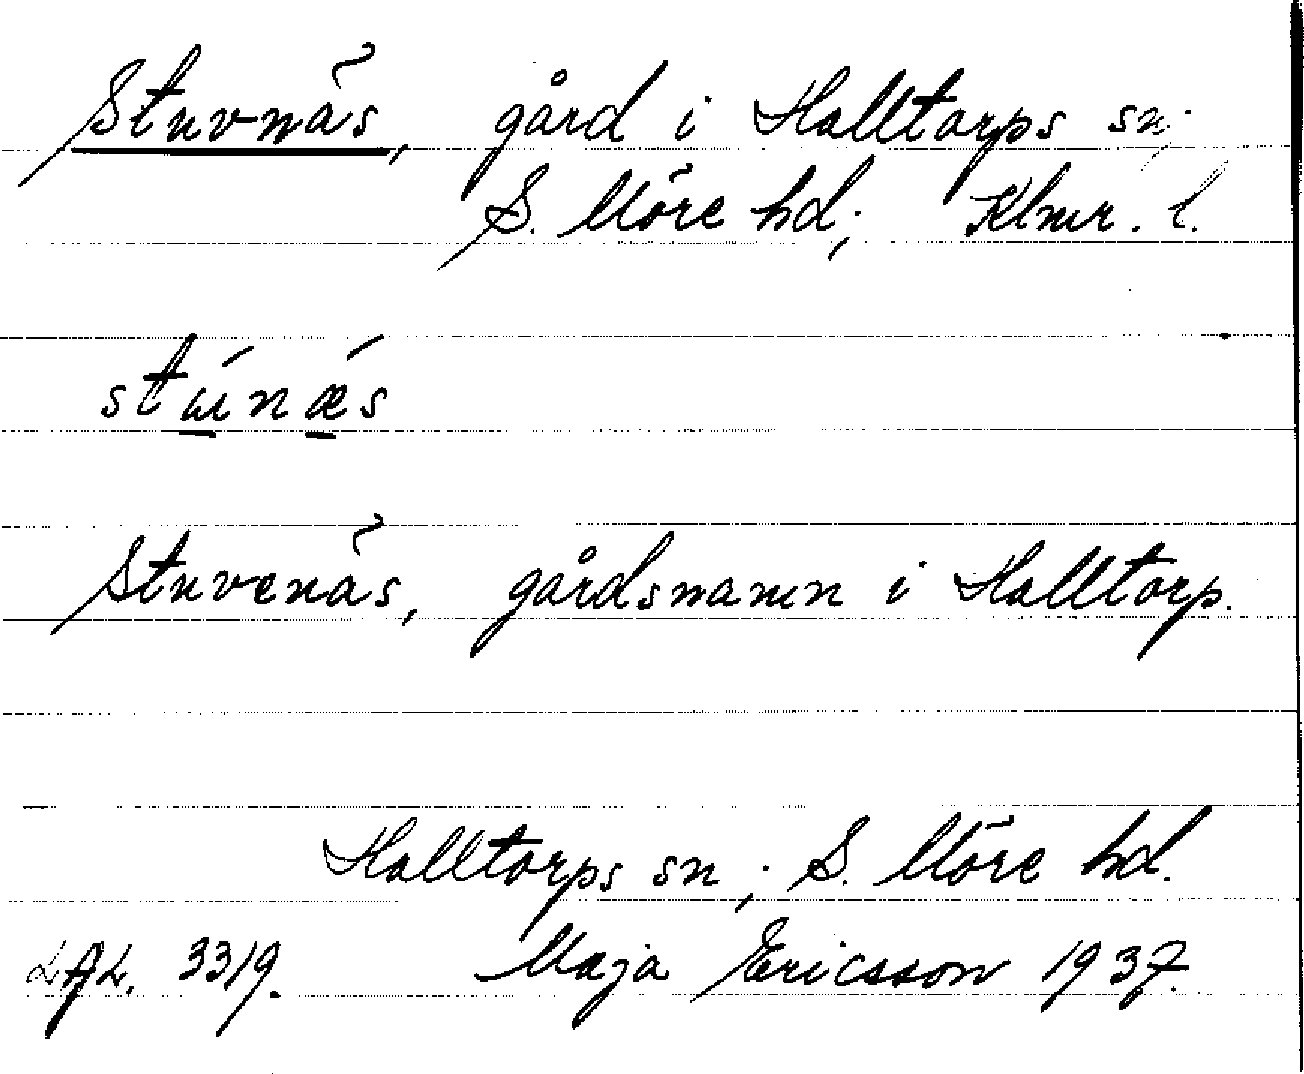 Stuvnäs, gård i Halltorps sn;
S. Möre hd; Klmr. l.
stúnǽs
Stuvenäs, gårdsnamn i Halltorp.
Halltorps sn; S. Möre hd.
3319. Maja Ericsson 1937.